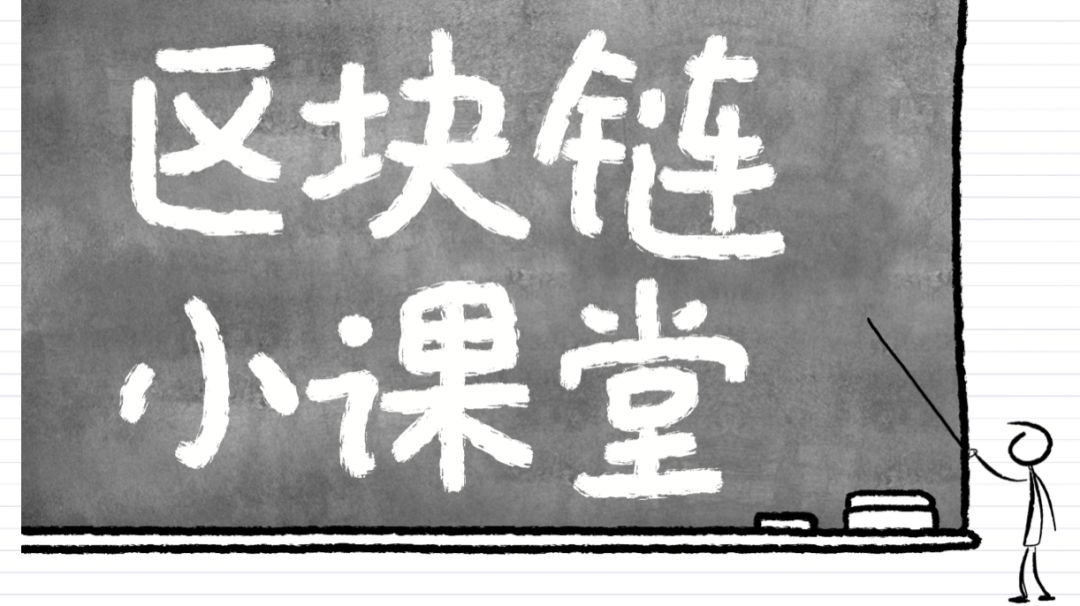 区块链
小课堂